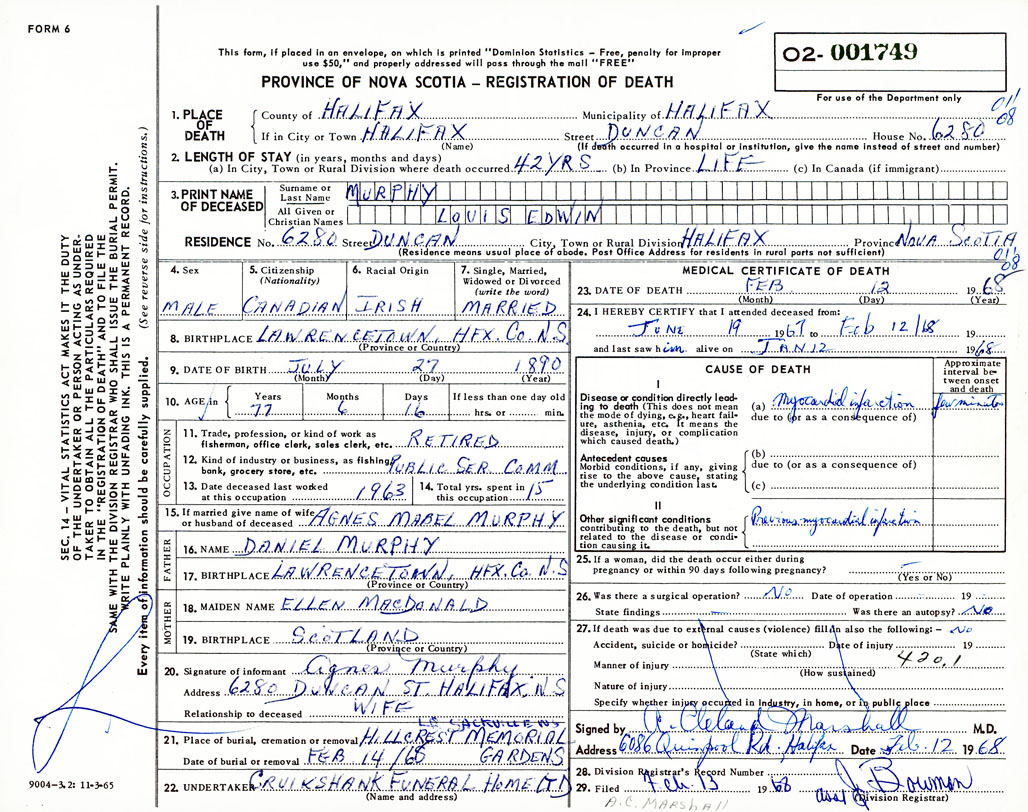 FORM 6
This form, if placed in an envelope, on which is printed "Dominion Statistics – Free, penalty for improper
use $50," and properly addressed will pass through the mail "FREE"
O2- 001749
For use of the Department only
PROVINCE OF NOVA SCOTIA – REGISTRATION OF DEATH
011
08
SEC. 14 – VITAL STATISTICS ACT MAKES IT THE DUTY
OF THE UNDERTAKER OR PERSON ACTING AS UNDER-
TAKER TO OBTAIN ALL THE PARTICULARS REQUIRED
IN THE "REGISTRATION OF DEATH" AND TO FILE THE
SAME WITH THE DIVISION REGISTRAR WHO SHALL ISSUE THE BURIAL PERMIT.
WRITE PLAINLY WITH UNFADING INK. THIS IS A PERMANENT RECORD.
Every item of information should be carefully supplied. (See reverse side for instructions.)
1. PLACE OF DEATH
County of HALIFAX Municipality of HALIFAX
If in City or Town HALIFAX Street DUNCAN House No. 6280
(Name) (If death occurred in a hospital or institution, give the name instead of street and number)
2. LENGTH OF STAY (in years, months and days)
(a) In City, Town or Rural Division where death occurred 42 YRS (b) In Province LIFE (c) In Canada (if immigrant)
3. PRINT NAME OF DECEASED
Surname or Last Name MURPHY
All Given or Christian Names LOUIS EDWIN
RESIDENCE No. 6280 Street DUNCAN City, Town or Rural Division HALIFAX Province NOVA SCOTIA
(Residence means usual place of abode. Post Office Address for residents in rural parts not sufficient)
011
08
4. Sex MALE
5. Citizenship (Nationality) CANADIAN
6. Racial Origin IRISH
7. Single, Married, Widowed or Divorced (write the word) MARRIED
8. BIRTHPLACE LAWRENCETOWN, HFX. CO. N.S
(Province or Country)
9. DATE OF BIRTH JULY 27 1890
(Month) (Day) (Year)
10. AGE in Years 77 Months 6 Days 16 If less than one day old hrs. or min.
OCCUPATION
11. Trade, profession, or kind of work as fisherman, office clerk, sales clerk, etc. RETIRED
12. Kind of industry or business, as fishing, bank, grocery store, etc. PUBLIC SER. COMM
13. Date deceased last worked at this occupation 1963
14. Total yrs. spent in this occupation 15
15. If married give name of wife or husband of deceased AGNES MABEL MURPHY
FATHER
16. NAME DANIEL MURPHY
17. BIRTHPLACE LAWRENCETOWN, HFX. CO. N.S
(Province or Country)
MOTHER
18. MAIDEN NAME ELLEN MACDONALD
19. BIRTHPLACE SCOTLAND
(Province or Country)
20. Signature of informant Agnes Murphy
Address 6280 DUNCAN ST. HALIFAX. N.S
Relationship to deceased WIFE
21. Place of burial, cremation or removal HILLCREST MEMORIAL
Date of burial or removal FEB 14/68 GARDENS
22. UNDERTAKER CRUIKSHANK FUNERAL HOME LTD
(Name and address)
9004-3.2: 11-3-65
MEDICAL CERTIFICATE OF DEATH
23. DATE OF DEATH FEB 12 1968
(Month) (Day) (Year)
24. I HEREBY CERTIFY that I attended deceased from:
JUNE 19 1967 to Feb 12/68 19
and last saw him alive on JAN 12 1968
CAUSE OF DEATH
Approximate interval between onset and death
I
Disease or condition directly leading to death (This does not mean the mode of dying, e.g., heart failure, asthenia, etc. It means the disease, injury, or complication which caused death.)
(a) Myocardial infarction few minutes
due to (or as a consequence of)
Antecedent causes
Morbid conditions, if any, giving rise to the above cause, stating the underlying condition last.
(b)
due to (or as a consequence of)
(c)
II
Other significant conditions
contributing to the death, but not related to the disease or condition causing it.
Previous myocardial infarction
25. If a woman, did the death occur either during
pregnancy or within 90 days following pregnancy?
(Yes or No)
26. Was there a surgical operation? No Date of operation 19
State findings Was there an autopsy? No
27. If death was due to external causes (violence) fill in also the following: – No
Accident, suicide or homicide? Date of injury 19
(State which)
Manner of injury 420.1
(How sustained)
Nature of injury
Specify whether injury occurred in industry, in home, or in public place
Signed by C. Cleland Marshall M.D.
Address 6086 Quinpool Rd. Halifax Date Feb. 12 1968
28. Division Registrar's Record Number
29. Filed Feb. 13 1968 J. Bowman
asst (Division Registrar)
A.C. MARSHALL